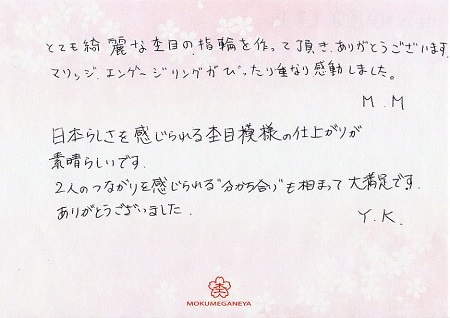 とても綺麗な杢目の指輪を作って頂き、ありがとうございます。
マリッジ、エンゲージリングがぴったり重なり感動しました。
M.M
日本らしさを感じられる杢目模様の仕上がりが
素晴らしいです.
2人のつながりを感じられる"分かち合い"も相まって大満足です.
ありがとうございました.
Y.K.
杢
MOKUMEGANEYA